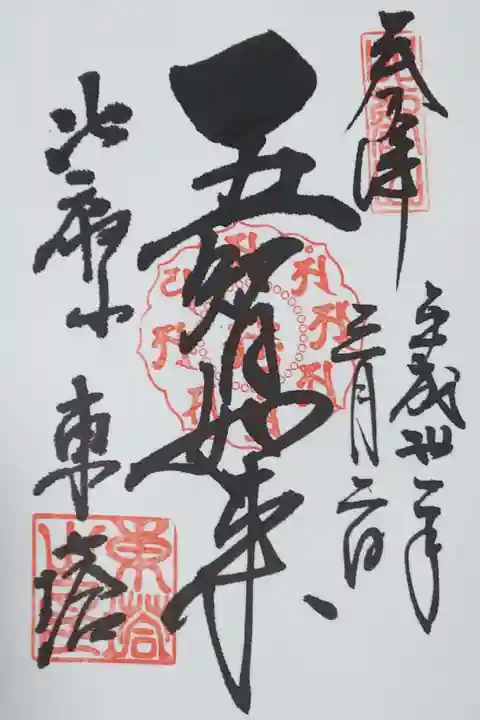 奉拝
平成卅一年
三月二日
五智如来
比叡山 東塔
東塔